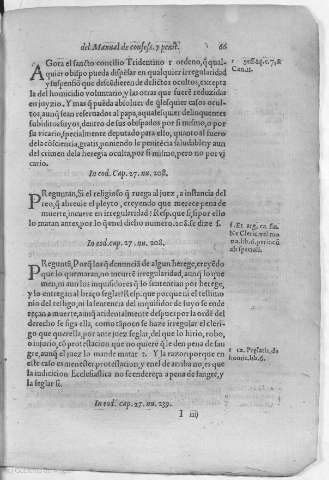 del Manual de confess. y penit. 66
AGora el sancto concilio Tridentino r ordeno, q̃ qual
quier obispo pueda dispẽsar en qualquier irregularidad
y suspensiõ que descẽdieren de delictos ocultos, excepta
la del homicidio voluntario, y las otras que fuerẽ reduzidas
en juyzio. Y mas q̃ pueda absoluer de q̃lesquier casos ocul
tos, aunq̃ sean referuados al papa, a qualesquier delinquentes
subditos suyos, dentro de sus obispados por si mismo, o por
su vicario, specialmente deputado para ello, quanto al fuero
dela cõsciencia, gratis, poniendo le penitẽcia saludable: y aun
del crimen dela heregia oculta, por si mismo, pero no por vi
cario.
In eod. Cap. 27. nu. 208.
PReguntan, Si el religioso q̃ ruega al juez, a instancia del
reo, q̃ abreuie el pleyto, creyendo que merece pena de
muerte, incurre en irregularidad? Resp. que si, si por ello
lo matan antes, por lo q̃ en el dicho numero. 208. se dize s.
In eod. cap. 27. nu. 208.
PRegunta, Porq̃ los q̃ denunciã de algun herege, creyẽdo
que lo quemaran, no incurrẽ irregularidad, aunq̃ lo que
men, ni aun los inquisidores q̃ lo sentencian por herege,
y lo entregan al braço seglar? Resp. que porque ni el testimo
nio del religioso, ni la sentencia del inquisidor de suyo se ende
reçan a muerte, aunq̃ accidentalmente despues por la ordẽ del
derecho se siga ella, como tãpoco se haze irregular el cleri
go que querella, por ante juez seglar, del que lo hirio, robo,
o injurio, cõ protestacion que no quiere q̃ le den pena de san
gre, aunq̃ el juez lo mande matar 2. Y la razon porque en
este caso es menester protestacion, y en el de arriba no, es que
la iudicion Ecclesiastica no se endereça a pena de sangre, y
la seglar si.
In eod. cap. 27. nu. 239.
I iij
r sess. 24. c. 7, &
Can. 11.
s. Et arg. ca. fi.
Ne Cleric. vel mo
na. lib. 6.
2 ca. Prelatis, de
homic. lib. 6.